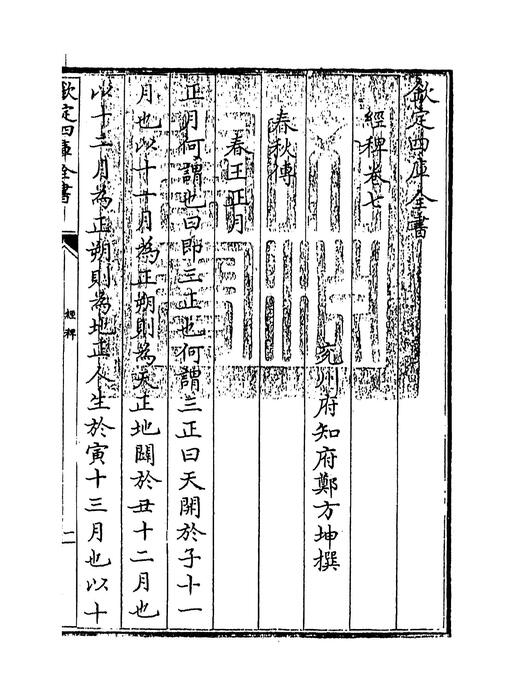 欽定四庫全書
經稗卷七
兖州府知府鄭方坤撰
春秋傳
春王正月
正月何謂也曰即三正也何謂三正曰天開於子十一
月也以十一月為正朔則為天正地闢於丑十二月也
以十二月為正朔則為地正人生於寅十三月也以十
欽定四庫全書
經稗
一